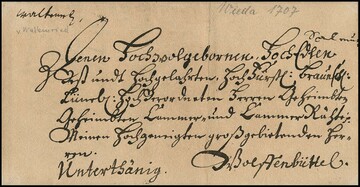 Nieda 1707
Denen Hochwolgebornen, HochEdlen
Vest undt Hochgelahrten, HochFürstl: Braunschl:
Lüneb: HochVerordneten Herren Geheimbten
Geheimbten Cammer, und Cammer Rähte,
Meinen Hochgeneigten großgebietenden Her
ren.
Unterthänig.
Wolffenbüttel.